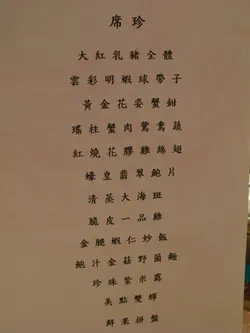 席珍
大紅乳豬全體
雲彩明蝦球帶子
黃金花姿蟹鉗
瑤柱蟹肉鴛鴦蔬
紅燒花膠雞絲翅
蠔皇翡翠鮑片
清蒸大海斑
脆皮一品雞
金腿蝦仁炒飯
鮑汁金菇野菌麵
珍珠紫米露
美點雙輝
鮮果拼盤